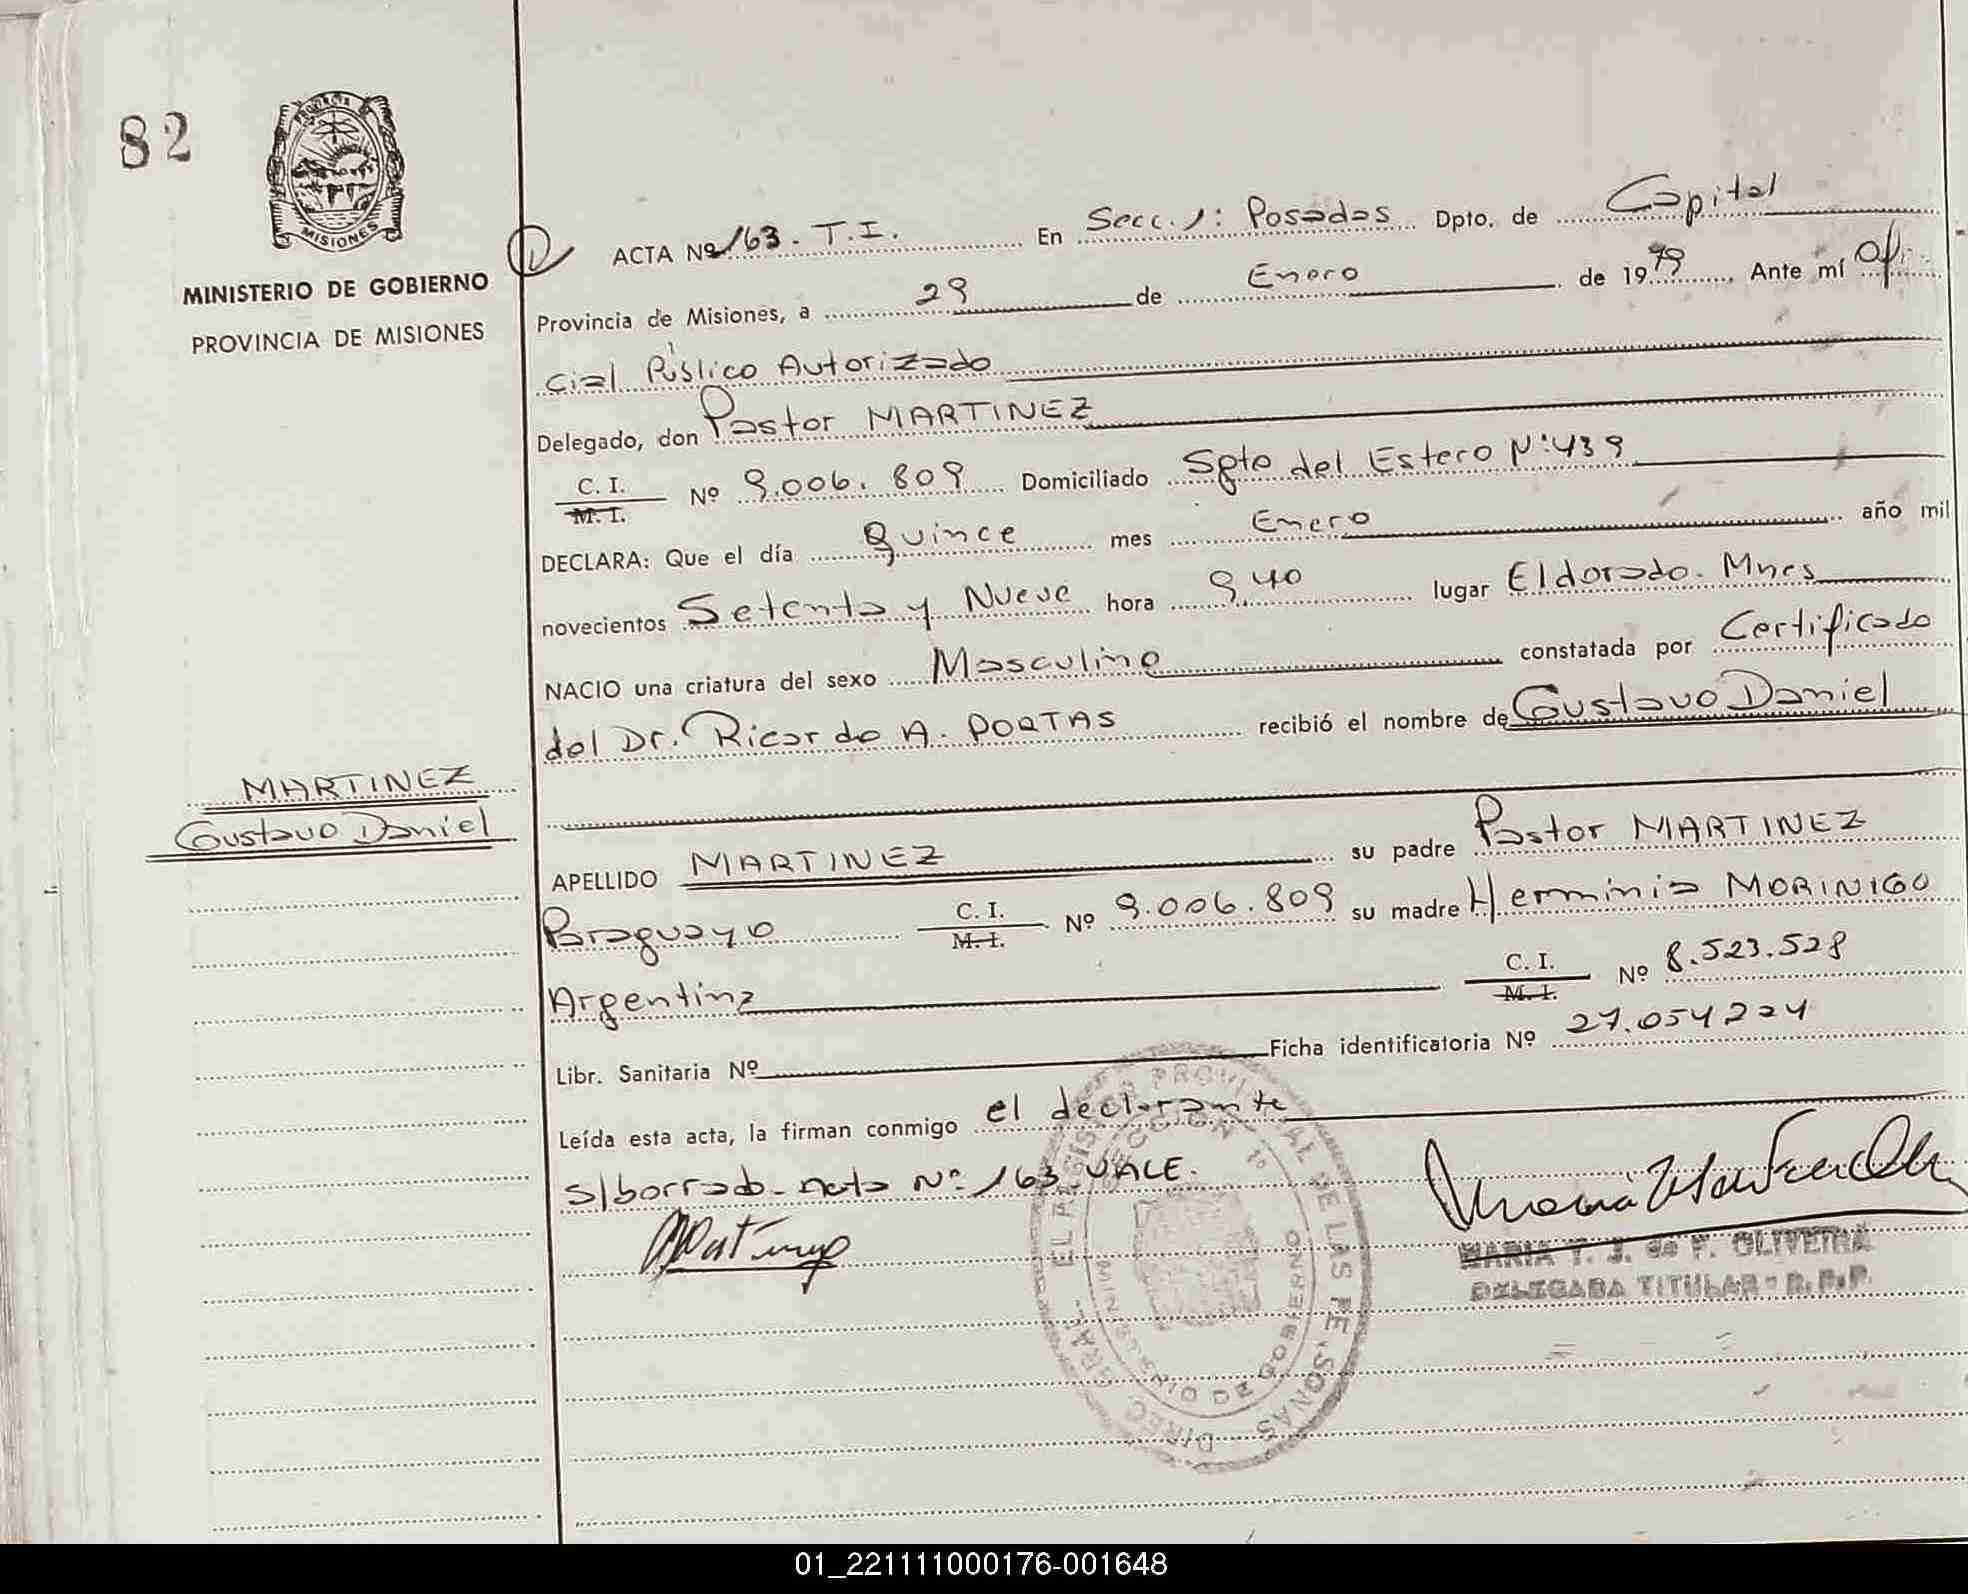 82
PROVINCIA
MISIONES
MINISTERIO DE GOBIERNO
PROVINCIA DE MISIONES
MARTINEZ
Gustavo Daniel
ACTA Nº 163. T.I. En Secc. 1: Posadas Dpto. de Capital
Provincia de Misiones, a 29 de Enero de 1979, Ante mí Ofi-
cial Público Autorizado
Delegado, don Pastor MARTINEZ
C. I.
M. I. Nº 9.006.809 Domiciliado Sgto del Estero Nº 439
DECLARA: Que el día Quince mes Enero año mil
novecientos Setenta y Nueve hora 9,40 lugar Eldorado. Mnes
NACIO una criatura del sexo Masculino constatada por Certificado
del Dr. Ricardo A. PORTAS recibió el nombre de Gustavo Daniel
APELLIDO MARTINEZ su padre Pastor MARTINEZ
Paraguayo C. I.
M. I. Nº 9.006.809 su madre Herminia MORINIGO
Argentina C. I.
M. I. Nº 8.523.528
Libr. Sanitaria Nº Ficha identificatoria Nº 27.054.224
Leída esta acta, la firman conmigo el declarante
s/borrado-Acta Nº 163. VALE.
MARIA T. J. de F. OLIVEIRA
DELEGADA TITULAR - R.P.P.
01_221111000176-001648